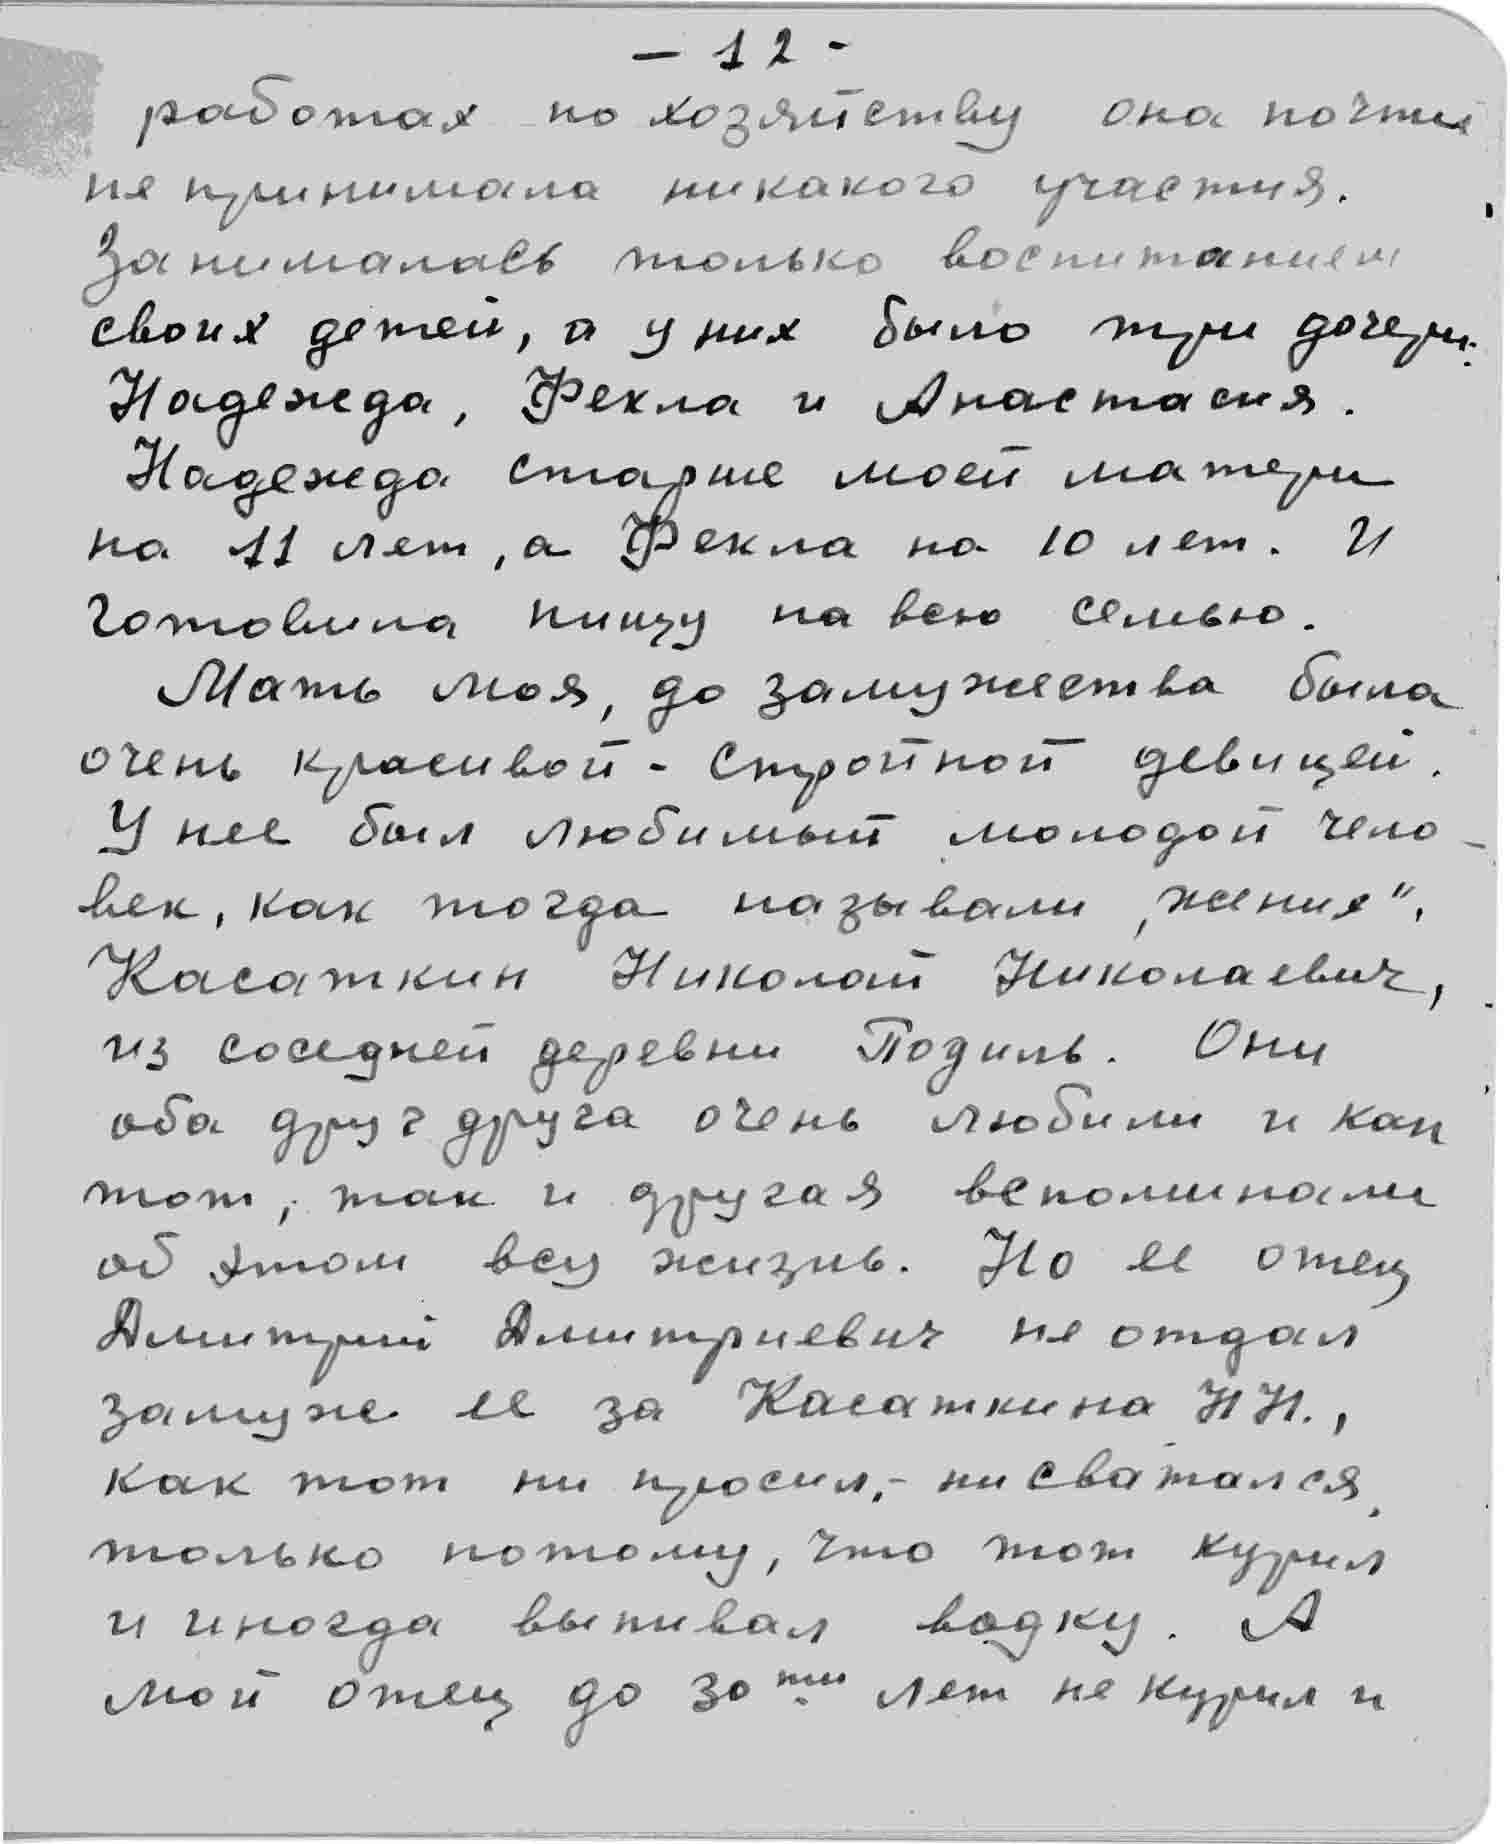 - 12 -
работах по хозяйству она почти
не принимала никакого участия.
Занималась только воспитанием
своих детей, а у них было три дочери:
Надежда, Фекла и Анастасия.
Надежда старше моей матери
на 11 лет, а Фекла на 10 лет. И
готовила пищу на всю семью.
Мать моя, до замужества была
очень красивой - стройной девицей.
У нее был любимый молодой чело-
век, как тогда называли „жених",
Касаткин Николай Николаевич,
из соседней деревни Подиль. Они
оба друг друга очень любили и как
тот, так и другая вспоминали
об этом всу жизнь. Но ее отец
Дмитрий Дмитриевич не отдал
замуж ее за Касаткина Н.Н.,
как тот ни просил,- ни сватался,
только потому, что тот курил
и иногда выпивал водку. А
мой отец до 30ти лет не курил и